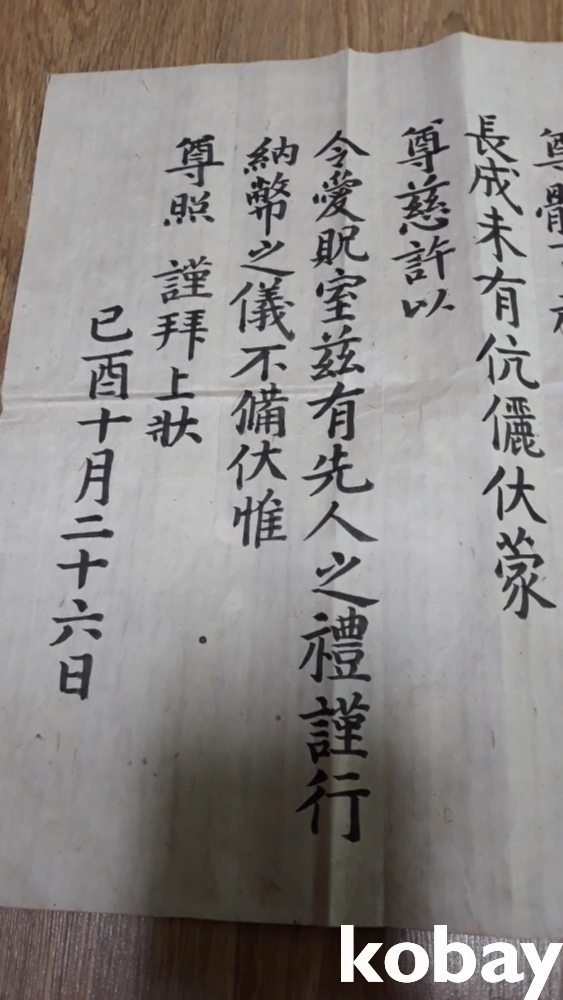 尊體
長成未有伉儷伏蒙
尊慈許以
令愛貺室茲有先人之禮謹行
納幣之儀不備伏惟
尊照 謹拜上狀
已酉十月二十六日
kobay